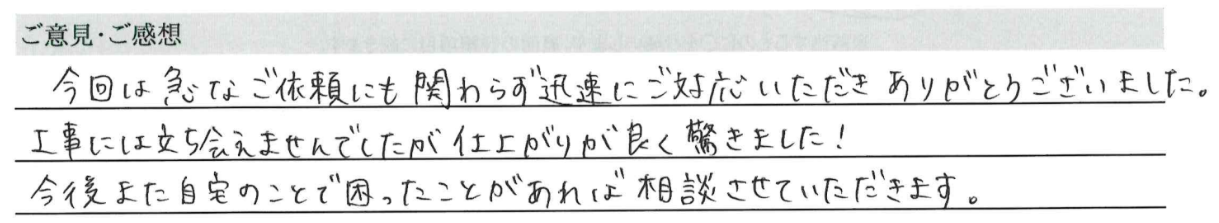 ご意見・ご感想
今回は急なご依頼にも関わらず迅速にご対応いただきありがとうございました。
工事には立ち会えませんでしたが仕上がりが良く驚きました！
今後また自宅のことで困ったことがあれば相談させていただきます。